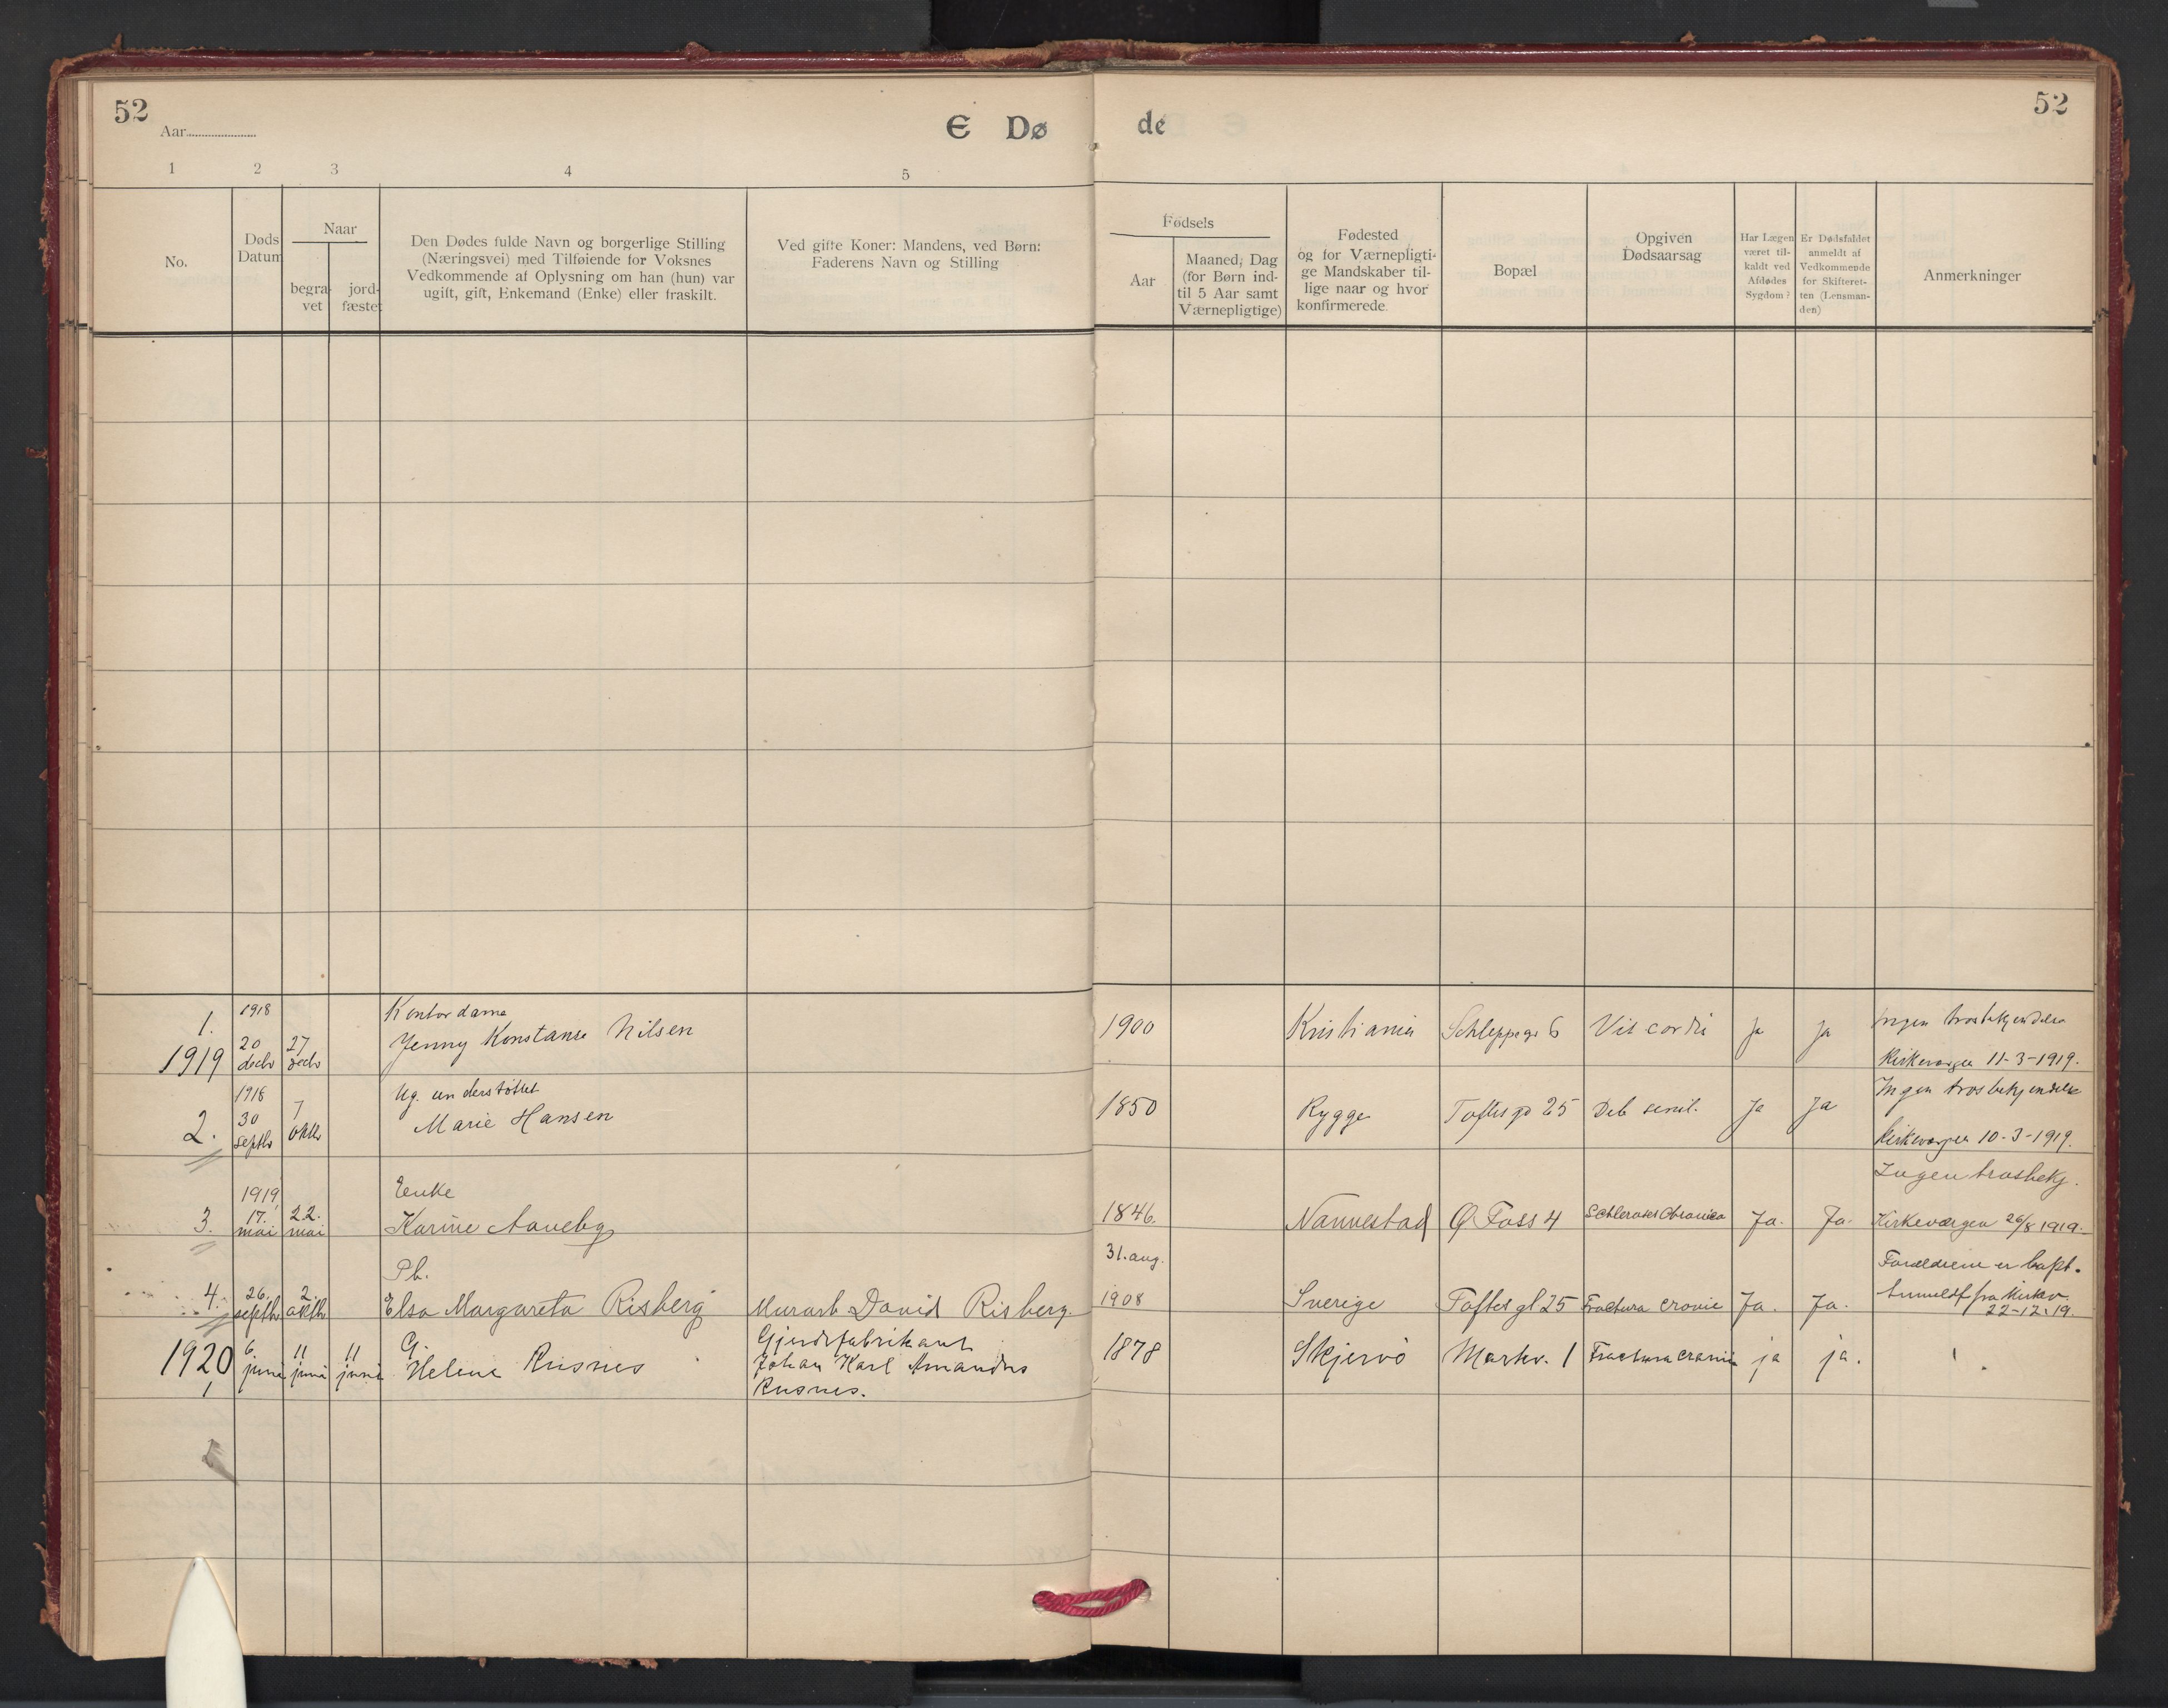 52
Aar
E Dø de
52
1 2 3 4 5
No.
Døds Datum
Naar
begra-vet
jord-fæstet
Den Dødes fulde Navn og borgerlige Stilling
(Næringsvei) med Tilføiende for Voksnes
Vedkommende af Oplysning om han (hun) var
ugift, gift, Enkemand (Enke) eller fraskilt.
Ved gifte Koner: Mandens, ved Børn:
Faderens Navn og Stilling
Fødsels
Aar
Maaned, Dag
(for Børn ind-
til 5 Aar samt
Værnepligtige)
Fødested
og for Værnepligti-
ge Mandskaber til-
lige naar og hvor
konfirmerede.
Bopæl
Opgiven
Dødsaarsag
Har Lægen
været til-
kaldt ved
Afdødes
Sygdom?
Er Dødsfaldet
anmeldt af
Vedkommende
for Skifteret-
ten (Lensman-
den)
Anmerkninger
1. 1918 Kontordame
1919 20 decbr 27 decbr Jenny Konstanse Nilsen 1900 Kristiania Schleppegr 6 Vit cordis ja ja Ingen trosbekjendelse
Kirkevergen 11-3-1919.
1918 Ug. understöttet
2. 30 septbr 7 oktbr Marie Hansen 1850 Rygge Toftesgd 25 Deb senil. Ja Ja Ingen trosbekjendelse
Kirkevergen 10-3-1919.
1919 Enke Ingen trosbekj.
3. 17. mai 22. mai Karine Aaneby 1846. Nannestad Ø. Foss 4 Ja. Ja. Kirkeværgen 26/8 1919.
Pb. 31. aug. Forældrene er bapt.
4. 26. septbr 2. oktbr Elsa Margareta Risberg Murarb David Risberg. 1908 Sverige Toftes gt 25 Fractura cranie Ja. Ja. Anmeldt fra Kirkev.
22-12-19.
1920 1 6 juni 11 juni 11 juni G. Helene Rusnes Johan Karl Amandus
Rusnes. 1878 Skjervö Markv. 1 Fractura cranii ja ja.